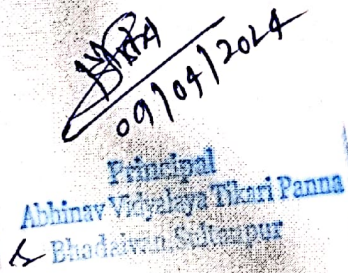 09/04/2024
Principal
Abhinav Vidyalaya Tikari Panna
Bhadaiyan, Sultanpur